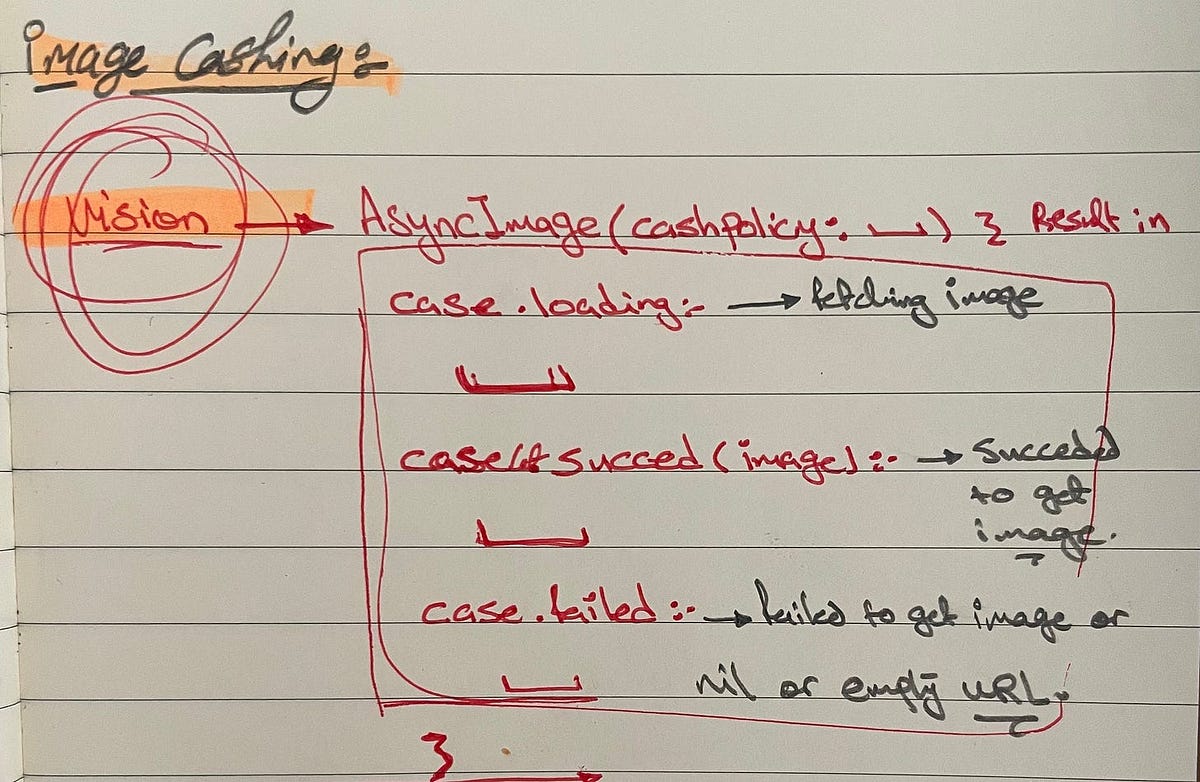 Image Cashing:-
Vision → AsyncImage(cashpolicy:. ⎵) { Result in
case.loading:- → fetching image
case succed (image) :- → Succeded
to get
image.
case.failed :- → failed to get image or
nil or empty URL.
}